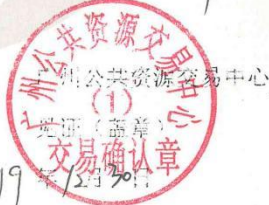 广州公共资源交易中心
广州公共资源交易中心
(1)
见证(盖章)
交易确认章
19年12月30日